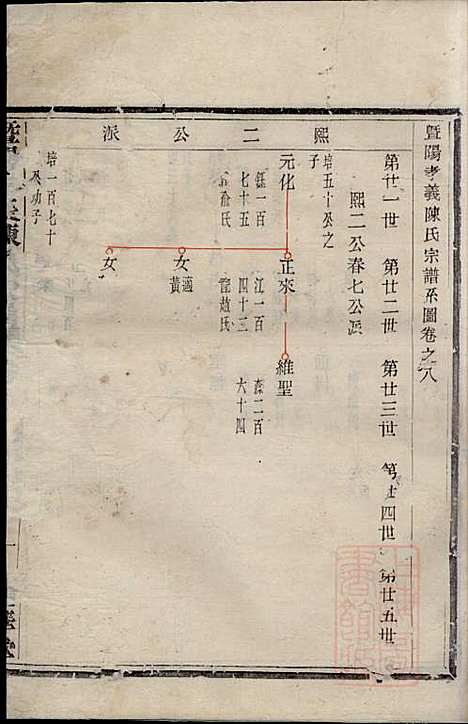 暨陽孝義陳氏宗譜系圖卷之八
第廿一世 第廿二世 第廿三世 第廿四世 第廿五世
熙二公春七公派
熙二公派
培五十公之
子
元化
鈺一百
七十五
俞氏
正來
江一百
四十三
趙氏
維聖
森二百
六十四
女
適
黃
女
培一百七十
及功子